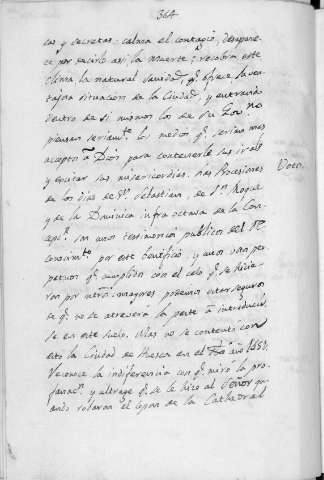 364
cas y secretas: calma el contagio, desapare-
ce por decirlo asi la muerte; recobra este
clima la natural sanidad, q.e ofrece la ven-
tajosa situacion de la Ciudad, y entrando
dentro de si mismos los de su Gov.no
piensan seriam.te los medios q.e serian mas
aceptos á Dios para contenerle sus iras
y excitar sus misericordias. Las Procesiones Voto.
de los dias de S.n Sebastian, de S.n Roque
y de la Dominica infra octava de la Con-
cep.n son unos testimonios publicos del R.l
conocim.to por este beneficio, y unos votos per-
petuos q.e cumplidos con el celo q.e se hicie-
ron por nuestros mayores podemos estar seguros
q.e no se atreverá la peste á introducir
se en este suelo. Mas no se contentó con
esto la Ciudad de Huesca en el año 1651.
Veconoce la indiferencia con q.e miró la pro-
fanac.n y ultrage q.e se le hizo al Señor qu-
ando robaron el Copon de la Cathedral